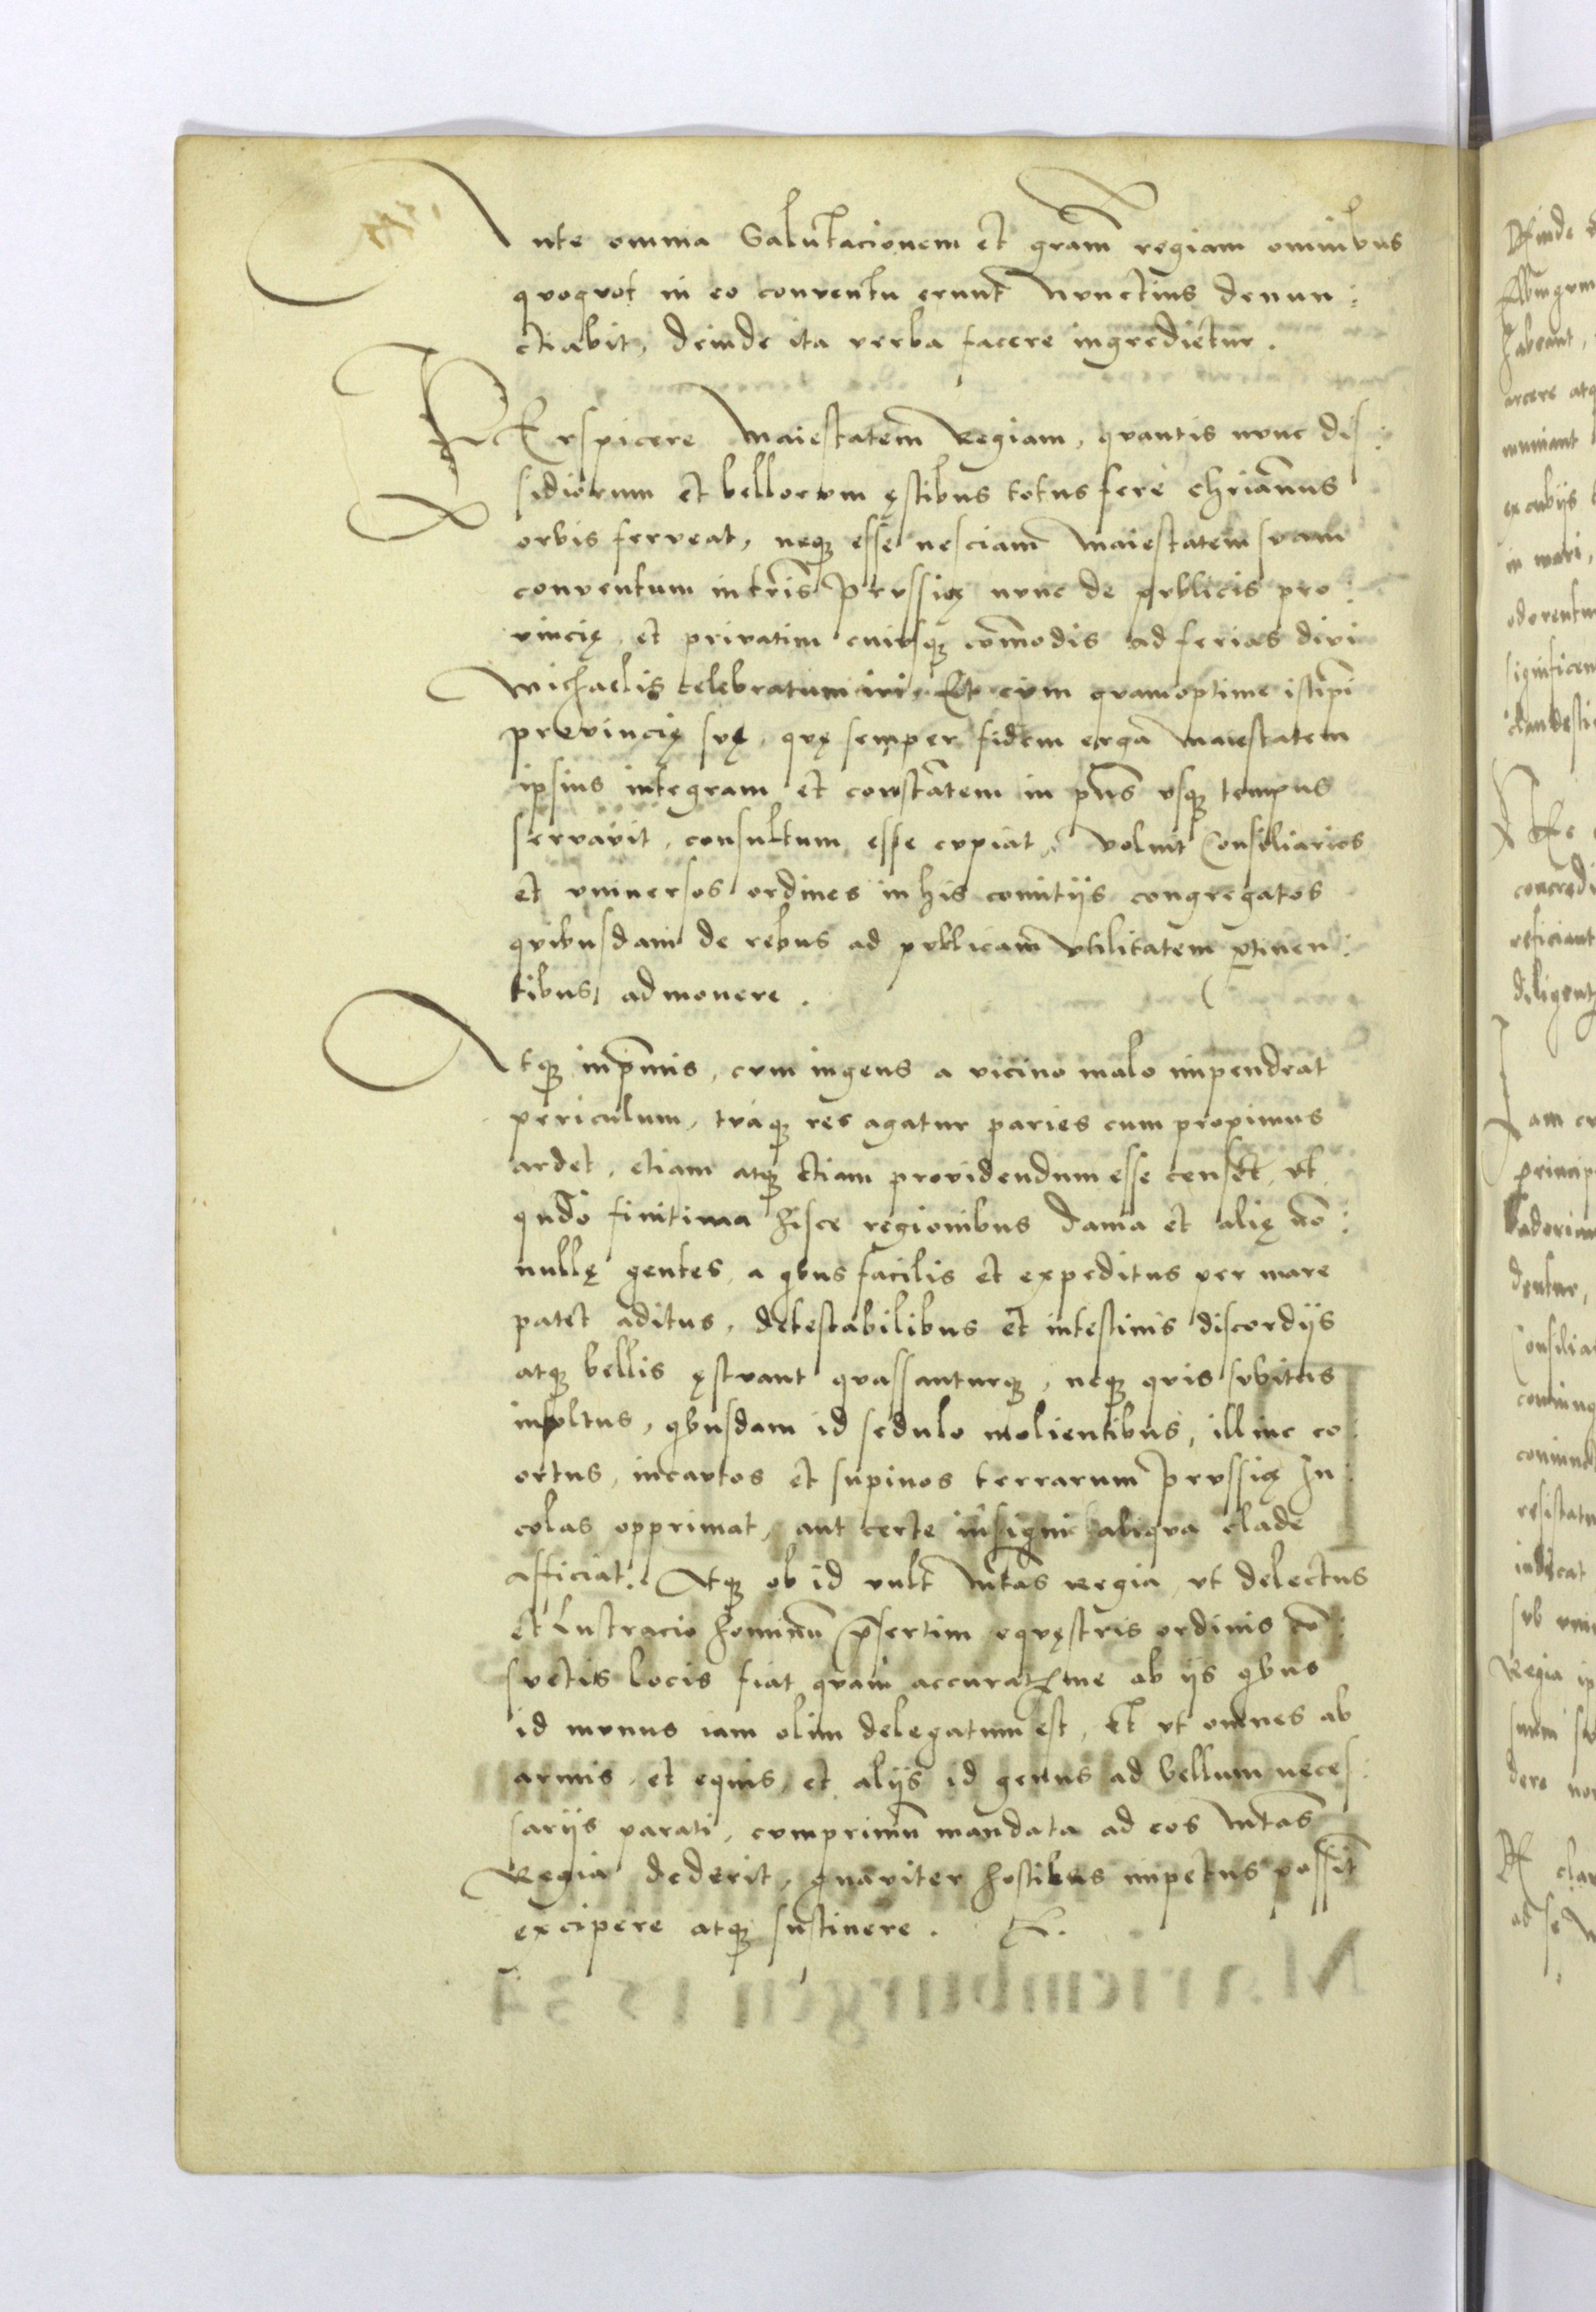 Ante omnia Salutacionem et gram̄ regiam omnibus
quoquot in eo conventu erunt Nunctius denun:
ctiabit, deinde ita verba facere ingredietur.
PErspicere Maiestatem Regiam, quantis nunc dis:
sidiorum et bellorum ęstibus totus fere chrianus
orbis ferveat, neq; esse nesciam Maiestatem suam
conventum in tris Prussię nunc de publicis pro:
vincię, et privatim cuiusq; com̄odis ad ferias divi
Michaelis celebratum iri. Et cum quamoptime isti
provincię suę, quę semper fidem erga Maiestatem
ipsius integram et constātem in pn̄s usq; tempus
servavit, consultum esse cupiat, voluit Consiliarios
et universos ordines in his comitijs congregatos
quibusdam de rebus ad publicam utilitatem ptinen:
tibus admonere.
Atq; inprimis, cum ingens a vicino malo impendeat
periculum, tuaq; res agatur paries cum proximus
ardet, etiam atq; etiam providendum esse censet, ut
qn̄do finitima hisce regionibus Dania et alię nō:
nullę gentes, a qbus facilis et expeditus per mare
patet aditus, detestabilibus et intestinis discordijs
atq; bellis ęstuant quassanturq;, neq; quis subitus
insultus, qbusdam id sedulo molientibus, illinc co:
ortus, incautos et supinos terrarum Prussię In:
colas opprimat, aut certe insigni aliqua clade
afficiat. Atq; ob id vult Mtas Regia, ut delectus
et Lustracio hominū psertim equęstris ordinis cō:
suetis locis fiat quam accuratme ab ijs qbus
id munus iam olim delegatum est, Et ut omnes ab
armis, et equis, et alijs id genus ad bellum neces:
sarijs parati, cumprimū mandata ad eos Mtas
Regia dederit, gnaviter hostibus impetus possint
excipere atq; sustinere.